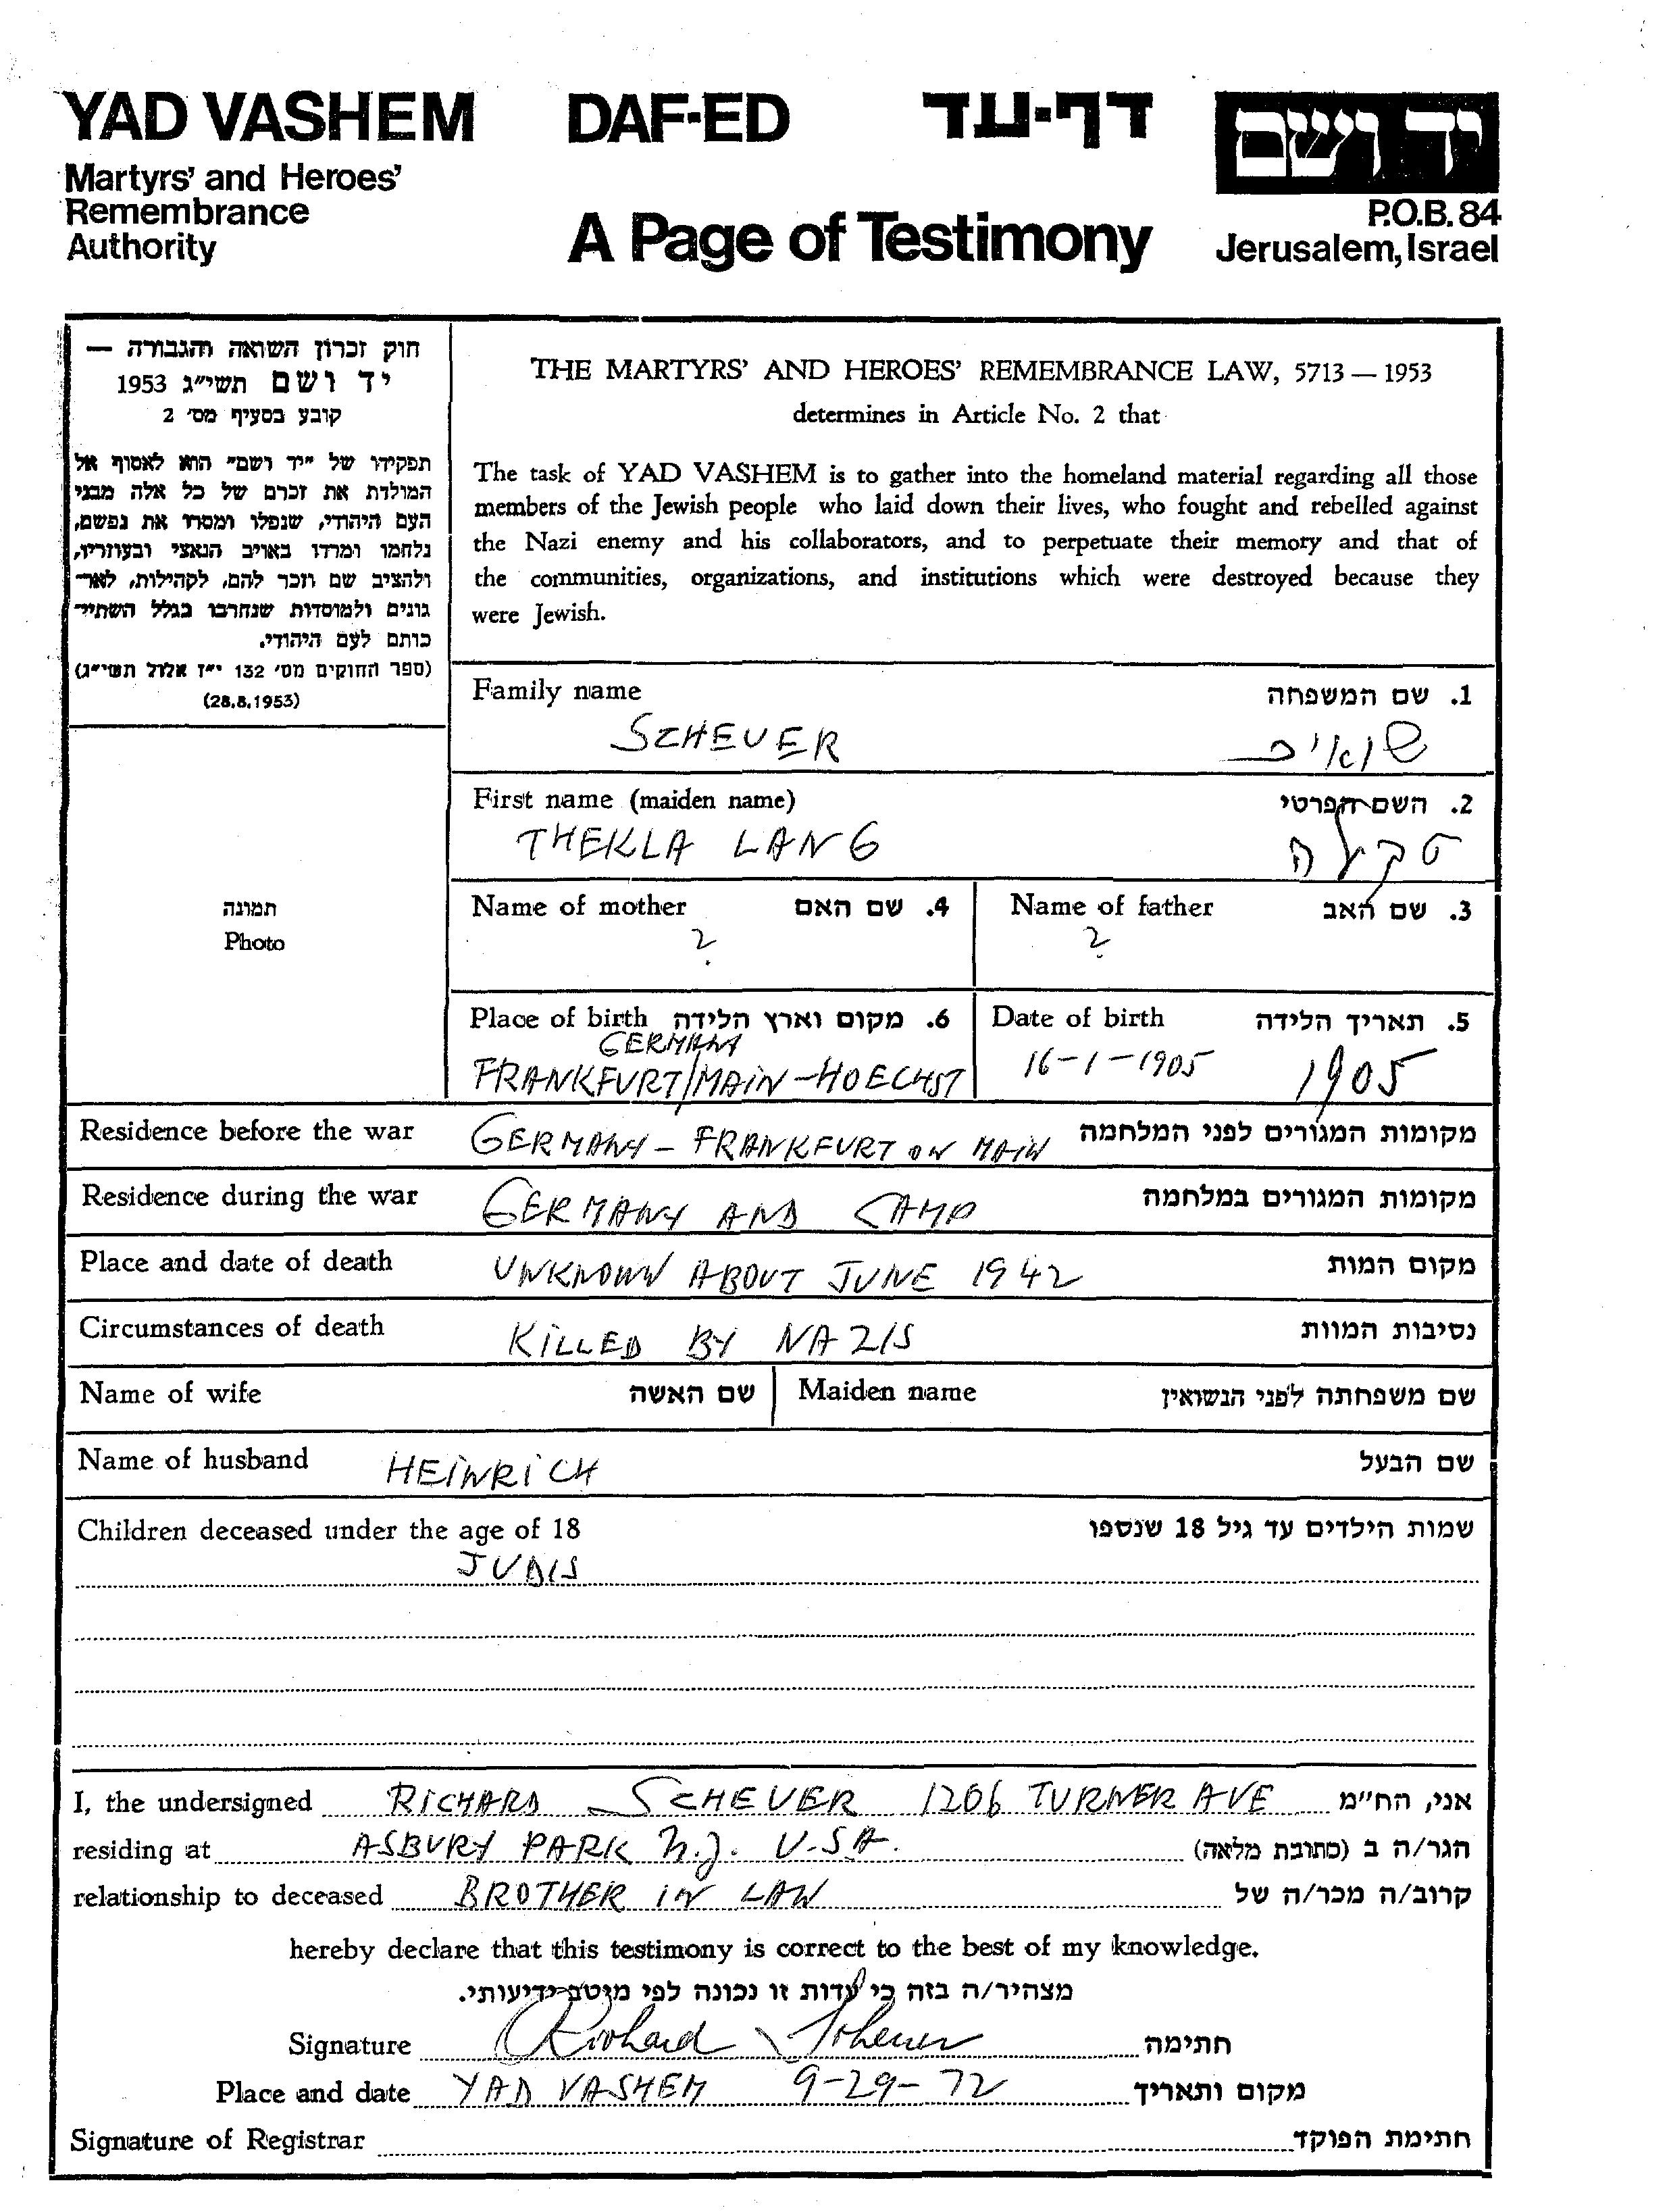 YAD VASHEM DAF-ED דף-עד יד ושם
Martyrs' and Heroes'
Remembrance
Authority
A Page of Testimony
P.O.B. 84
Jerusalem, Israel
חוק זכרון השואה והגבורה —
יד ושם תשי״ג 1953
קובע בסעיף מס׳ 2
תפקידו של "יד ושם" הוא לאסוף אל
המולדת את זכרם של כל אלה מבני
העם היהודי, שנפלו ומסרו את נפשם,
נלחמו ומרדו באויב הנאצי ובעוזריו,
ולהציב שם וזכר להם, לקהילות, לאר־
גונים ולמוסדות שנחרבו בגלל השתיי־
כותם לעם היהודי.
(ספר החוקים מס׳ 132 י״ז אלול תשי״ג)
(28.8.1953)
תמונה
Photo
THE MARTYRS' AND HEROES' REMEMBRANCE LAW, 5713 — 1953
determines in Article No. 2 that
The task of YAD VASHEM is to gather into the homeland material regarding all those
members of the Jewish people who laid down their lives, who fought and rebelled against
the Nazi enemy and his collaborators, and to perpetuate their memory and that of
the communities, organizations, and institutions which were destroyed because they
were Jewish.
Family name 1. שם המשפחה
SCHEUER
First name (maiden name) 2. השם הפרטי
THEKLA LANG טקלה
Name of mother 4. שם האם Name of father 3. שם האב
? ?
Place of birth 6. מקום וארץ הלידה Date of birth 5. תאריך הלידה
GERMANY
FRANKFURT/MAIN-HOECHST 16-1-1905 1905
Residence before the war GERMANY - FRANKFURT ON MAIN מקומות המגורים לפני המלחמה
Residence during the war GERMANY AND CAMP מקומות המגורים במלחמה
Place and date of death UNKNOWN ABOUT JUNE 1942 מקום המות
Circumstances of death KILLED BY NAZIS נסיבות המוות
Name of wife שם האשה Maiden name שם משפחתה לפני הנשואין
Name of husband HEINRICH שם הבעל
Children deceased under the age of 18 שמות הילדים עד גיל 18 שנספו
JUDIS
I, the undersigned RICHARD SCHEUER 1206 TURNER AVE אני, החי״מ
residing at ASBURY PARK N.J. U.S.A. הגר/ה ב (כתובת מלאה)
relationship to deceased BROTHER IN LAW קרוב/ה מכר/ה של
hereby declare that this testimony is correct to the best of my knowledge.
מצהיר/ה בזה כי עדות זו נכונה לפי מיטב ידיעותי.
Signature Richard Scheuer חתימה
Place and date YAD VASHEM 9-29-72 מקום ותאריך
Signature of Registrar חתימת הפוקד